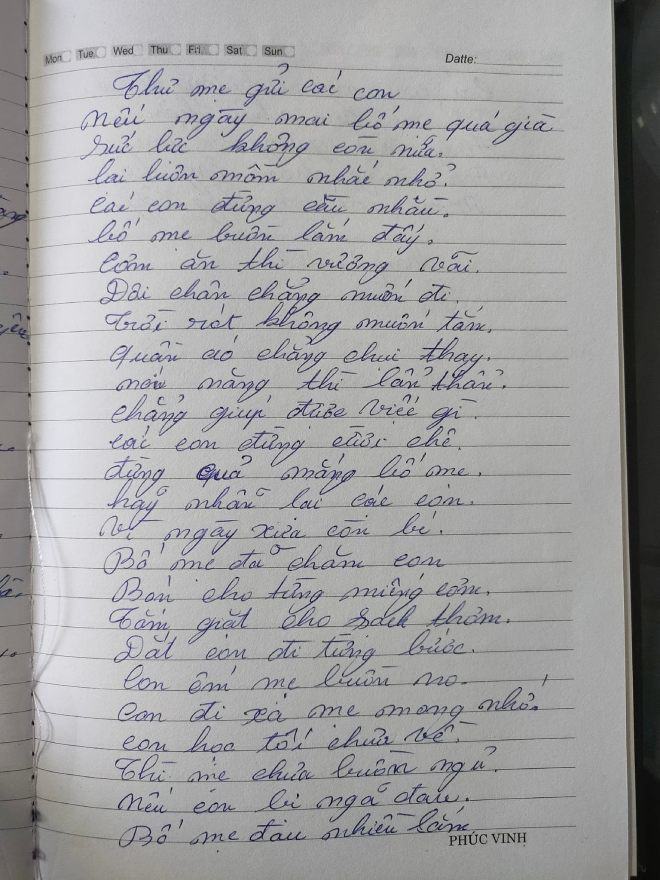 Mon Tue Wed Thu Fri Sat Sun Datte:
Thư mẹ gửi các con
Nếu ngày mai bố mẹ quá già
sức lực không còn nữa.
lại luôn mồm nhắc nhở.
các con đừng cằu nhằu.
bố mẹ buồn lắm đấy.
Cơm ăn thì vương vãi.
Đôi chân chẳng muốn đi.
Trời rét không muốn tắm.
quần áo chẳng chịu thay.
nói năng thì lẩn thẩn.
chẳng giúp được việc gì.
các con đừng cười chê.
đừng quả mắng bố mẹ.
hãy nhẫn lại các con.
Vì ngày xưa còn bé.
Bố mẹ đã chăm con
Bón cho từng miếng cơm.
Tắm giặt cho sạch thơm.
Dắt con đi từng bước.
Con ốm mẹ buồn no.
Con đi xa mẹ mong nhớ.
con học tối chưa về.
Thì mẹ chưa buồn ngủ.
Nếu con bị ngã đau.
Bố mẹ đau nhiều lắm
PHÚC VINH